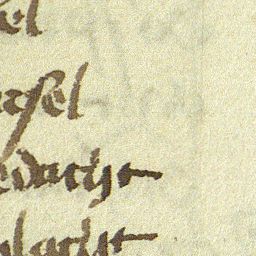 el
ersel
edacht
lacht